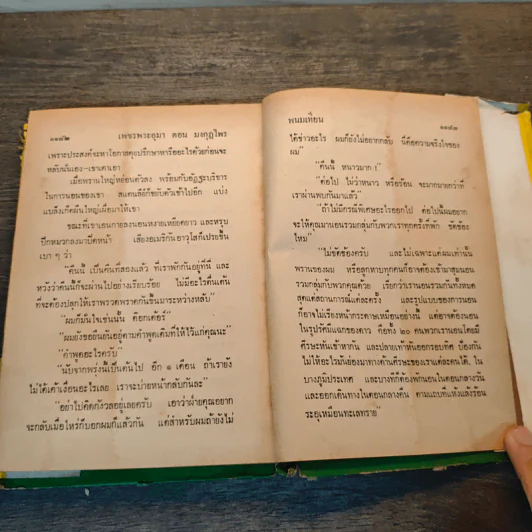 ๑๑๘๒ เพชรพระอุมา ตอน มงกุฎไพร
เพราะประสงค์จะหาโอกาสคุยปรึกษาหารืออะไรด้วยก่อนจะ
หลับนั่นเอง—เขาเดาเอา
เมื่อพรานใหญ่หย่อนตัวลง พร้อมกับอัฐะบริขาร
ในการนอนของเขา สแตนลีย์ก็ขยับตัวเข้าไปอีก แบ่ง
แบล็งเก็ตผืนใหญ่เผื่อมาให้เขา
ขณะที่เขาเอนกายลงนอนหงายเหยียดยาว และหรุบ
ปีกหมวกลงมาปิดหน้า เสียงอเมริกันอาวุโสก็เปรยขึ้น
เบา ๆ ว่า
"คืนนี้ เป็นคืนที่สองแล้ว ที่เราพักกันอยู่ที่นี่ และ
หวังว่าคืนนี้ก็จะผ่านไปอย่างเรียบร้อย ไม่มีอะไรตื่นเต้น
ที่จะต้องปลุกให้เราพรวดพราดกันขึ้นมาระหว่างหลับ"
"ผมก็มั่นใจเช่นนั้น ด๊อกเตอร์"
"ผมยังขอยืนยันอยู่ตามคำพูดเดิมที่ให้ไว้แก่คุณนะ"
"คำพูดอะไรครับ"
"นับจากพรุ่งนี้เป็นต้นไป อีก ๑ เดือน ถ้าเรายัง
ไม่ได้เค้าเงื่อนอะไรเลย เราจะบ่ายหน้ากลับกันละ"
"อย่าไปคิดกังวลอยู่เลยครับ เอาว่าฝ่ายคุณอยาก
จะกลับเมื่อไหร่ก็บอกผมก็แล้วกัน แต่สำหรับผมถ้ายังไม่
พนมเทียน ๑๑๘๓
ได้ข่าวอะไร ผมก็ยังไม่อยากกลับ นี่คือความจริงใจของ
ผม"
"คืนนี้ หนาวมาก !"
"ต่อไป ไม่ว่าหนาว หรือร้อน จะมากมายกว่าที่
เราผ่านพบกันมาแล้ว"
"ถ้าไม่มีกรณีพิเศษอะไรออกไป ต่อไปนี้ผมอยาก
จะให้คุณมานอนรวมกลุ่มกับพวกเราทุกครั้งที่พัก ขัดข้อง
ไหม"
"ไม่ขัดข้องครับ และไม่เฉพาะแต่ผมเท่านั้น
พรานของผม หรือลูกหาบทุกคนก็อาจต้องเข้ามาสุมนอน
รวมกลุ่มกับพวกคุณด้วย เรียกว่าเรานอนรวมกันทั้งหมด
สุดแต่สถานการณ์แต่ละครั้ง และรูปแบบของการนอน
ก็อาจไม่เรียงหน้ากระดานเหมือนอย่างนี้ แต่อาจต้องนอน
ในรูปรัศมีแฉกของดาว คือทั้ง ๒๐ คนพวกเรานอนโดยมี
ศีรษะหันเข้าหากัน และปลายเท้าหันออกรอบทิศ ป้องกัน
ไม่ให้อะไรมันย่องมาทางด้านศีรษะของเราแต่ละคนได้, ใน
บางภูมิประเทศ และบางทีก็ต้องพักนอนในตอนกลางวัน
และออกเดินทางในตอนกลางคืน ตามแถบที่แห้งแล้งร้อน
ระอุเหมือนทะเลทราย"